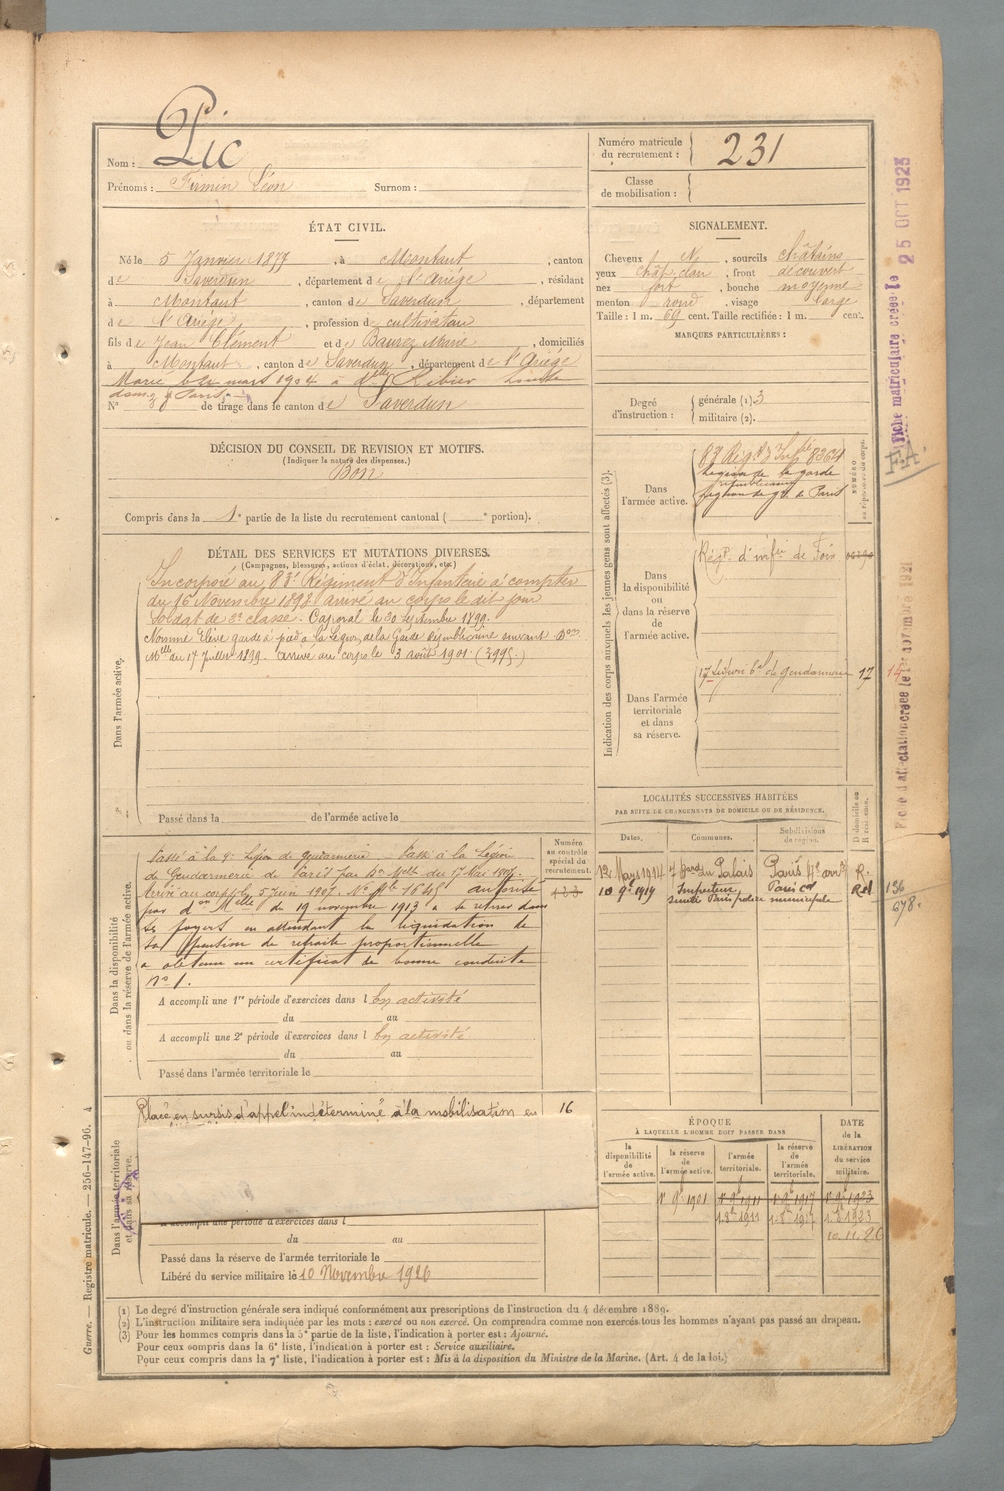 Nom : Pic
Prénoms : Firmin Léon Surnom :
Numéro matricule du recrutement : 231
Classe de mobilisation :
ÉTAT CIVIL.
Né le 5 Janvier 1877, à Montaut, canton
de Saverdun, département de l'Ariége, résidant
à Montaut, canton de Saverdun, département
de l'Ariége, profession de cultivateur
fils de Jean Clément et de Baurez Marie, domiciliés
à Montaut, canton de Saverdun, département de l'Ariége
Marié le mars 1904 à dlle Ribier
domé à Paris.
N° de tirage dans le canton de Saverdun
SIGNALEMENT.
Cheveux N, sourcils châtains
yeux chât clair, front découvert
nez fort, bouche moyenne
menton rond, visage large
Taille : 1 m. 69 cent. Taille rectifiée : 1 m. cent.
MARQUES PARTICULIÈRES :
Degré d'instruction : générale (1). 3
militaire (2).
DÉCISION DU CONSEIL DE REVISION ET MOTIFS.
(Indiquer la nature des dispenses.)
Bon
Compris dans la 1e partie de la liste du recrutement cantonal ( e portion).
Indication des corps auxquels les jeunes gens sont affectés (3).
NUMÉRO
Dans l'armée active.
83 Régt d'Infie 8364
Légion de la garde
républicaine
Légion de gie de Paris
Dans la disponibilité ou dans la réserve de l'armée active.
Régt. d'infie de Foix
Dans l'armée territoriale et dans sa réserve.
17e Légion de gendarmerie 17
DÉTAIL DES SERVICES ET MUTATIONS DIVERSES.
(Campagnes, blessures, actions d'éclat, décorations, etc.)
Dans l'armée active.
Incorporé au 83e Régiment d'Infanterie à compter
du 16 Novembre 1898 arrivé au corps le dit jour
Soldat de 2e classe. Caporal le 30 Septembre 1899.
Nommé Elève garde à pied à la Légion de la Garde Républicaine suivant Don
Mlle du 17 Juillet 1899. arrivé au corps le 3 août 1901. (3995.)
Passé dans la de l'armée active le
LOCALITÉS SUCCESSIVES HABITÉES
PAR SUITE DE CHANGEMENTS DE DOMICILE OU DE RÉSIDENCE.
Dates. Communes. Subdivisions de région. D domicile ou R résidence.
12 Mars 1914 7 Bard du Palais Paris 4e arrt R.
10 9e 1919 Inspecteur Paris
sureté Paris police municipale
136
678.
Numéro au contrôle spécial du recrutement.
Dans la disponibilité ou dans la réserve de l'armée active.
Passé à la 9e Légion de gendarmerie _ Passé à la Légion
de Gendarmerie de Paris par Don Mlle du 17 Mai 1907.
Arrivé au corps le 5 Juin 1907. autorisé
par don Mlle du 19 novembre 1913 a se retirer dans
ses foyers en attendant la liquidation de
sa Pension de retraite proportionnelle
a obtenu un certificat de bonne conduite
no 1.
A accompli une 1re période d'exercices dans l En activité
du au
A accompli une 2e période d'exercices dans l En activité
du au
Passé dans l'armée territoriale le
Dans l'armée territoriale et dans sa réserve.
Placé en sursis d'appel indéterminé à la mobilisation en 16
A accompli une période d'exercices dans l
du au
Passé dans la réserve de l'armée territoriale le
Libéré du service militaire le 10 Novembre 1926
ÉPOQUE
À LAQUELLE L'HOMME DOIT PASSER DANS
la disponibilité de l'armée active. la réserve de l'armée active. l'armée territoriale. la réserve de l'armée territoriale. DATE de la LIBÉRATION du service militaire.
1er 9e 1901 1er 9e 1911 1er 9e 1917 1er 9e 1923
1.8e 1911 1.8e 1917 1.8e 1923
10.11.26
(1) Le degré d'instruction générale sera indiqué conformément aux prescriptions de l'instruction du 4 décembre 1889.
(2) L'instruction militaire sera indiquée par les mots : exercé ou non exercé. On comprendra comme non exercés tous les hommes n'ayant pas passé au drapeau.
(3) Pour les hommes compris dans la 5e partie de la liste, l'indication à porter est : Ajourné.
Pour ceux compris dans la 6e liste, l'indication à porter est : Service auxiliaire.
Pour ceux compris dans la 7e liste, l'indication à porter est : Mis à la disposition du Ministre de la Marine. (Art. 4 de la loi.)
Guerre. — Registre matricule. — 256-147-96. 4
Fiche matriculaire créée le 25 OCT 1923
F.A.
Fiche d'affectation créée le 1er novembre 1921